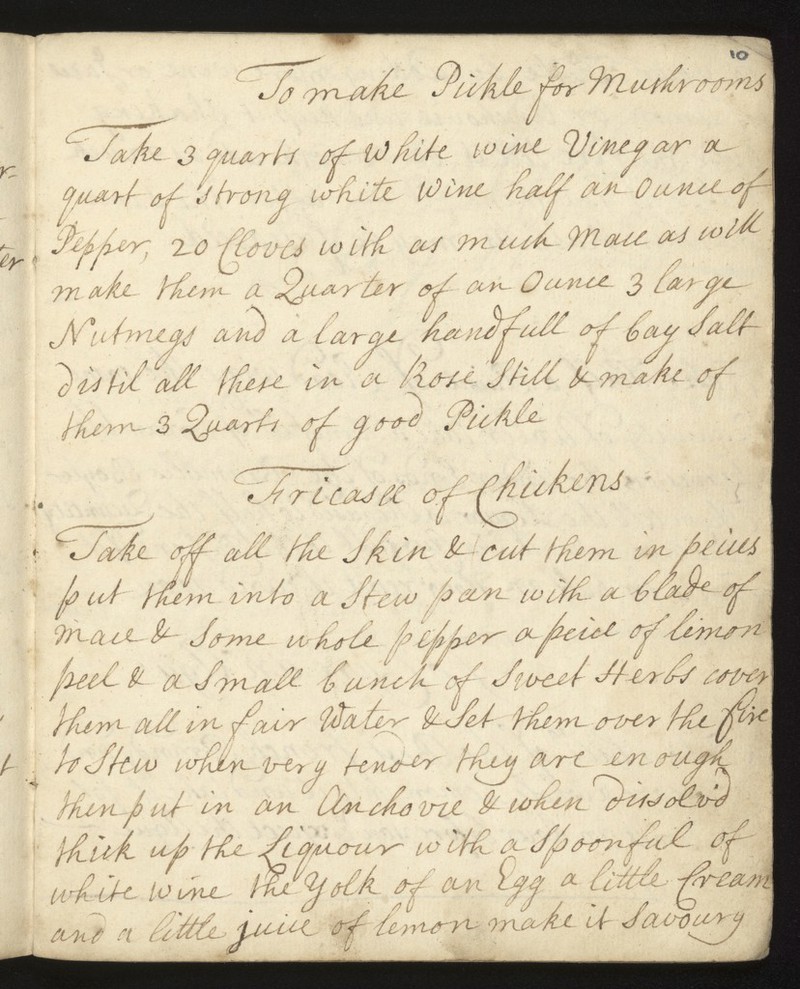 10
To make Pickle for Mushrooms
Take 3 quarts of White wine Vinegar a
quart of strong white Wine half an Ounce of
Pepper, 20 Cloves with as much Mace as will
make them a Quarter of an Ounce 3 large
Nutmegs and a large handfull of bay Salt
Distil all these in a Rose Still & make of
them 3 Quarts of good Pickle
Fricasee of Chickens
Take off all the Skin & cut them in peices
put them into a Stew pan with a blade of
Mace & Some whole pepper a peice of limon
peel & a Small bunch of Sweet Herbs cover
them all in fair Water & Set them over the fire
to Stew when very tender they are enough
then put in an Anchovie & when dissolv'd
thick up the Liquour with a Spoonful of
white wine the Yolk of an Egg a little Cream
and a little juice of lemon make it Savoury